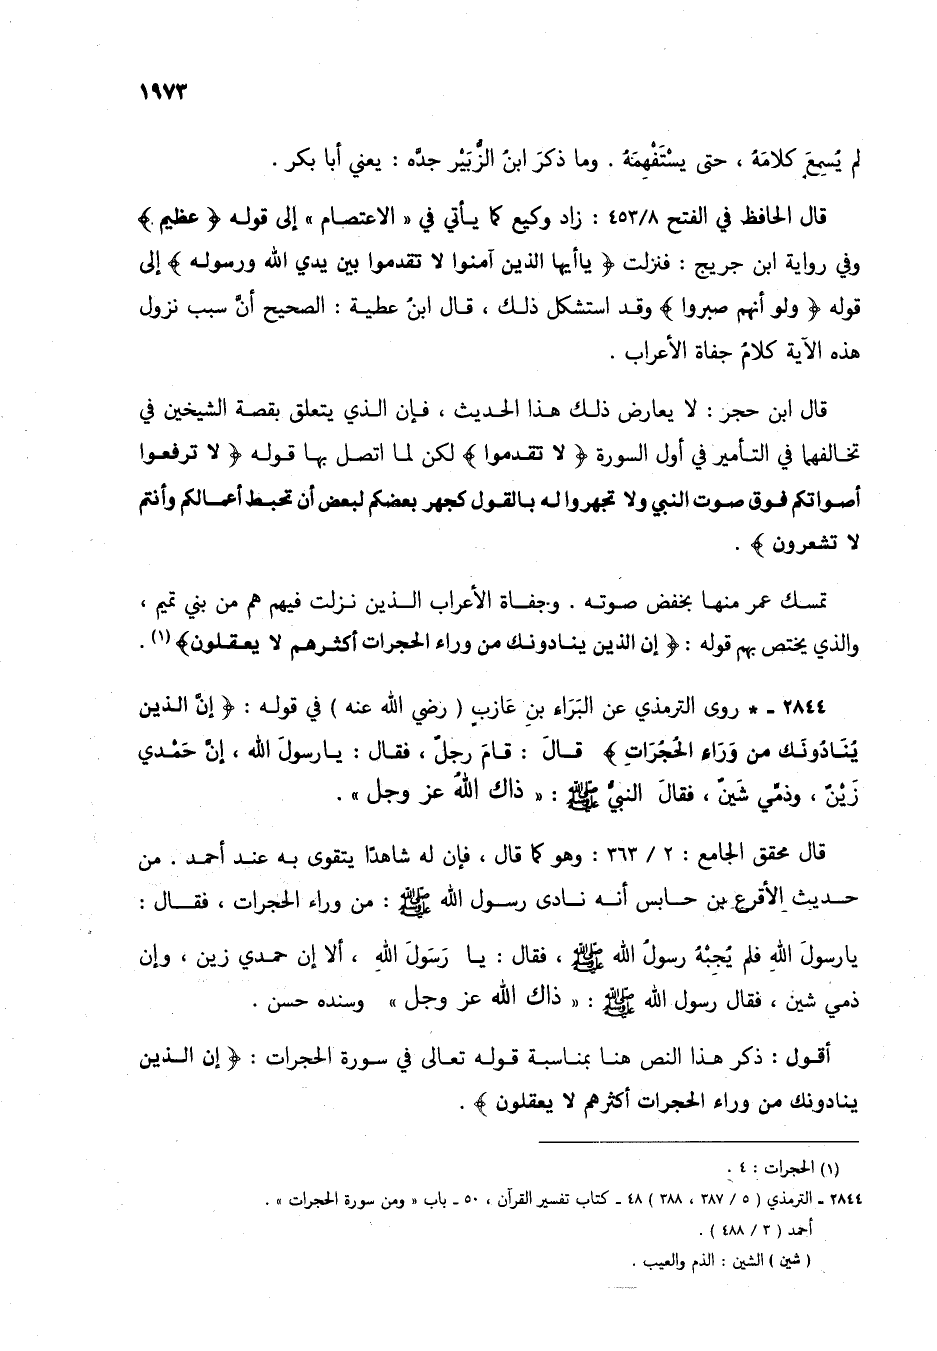 ١٩٧٣
لم يُسمِعَ كلامَهُ ، حتى يسْتَفْهِمَهُ . وما ذكرَ ابنُ الزُّبَيْر جدَّه : يعني أبا بكر .
قال الحافظ في الفتح ٤٥٣/٨ : زاد وكيع كما يـأتي في « الاعتصام » إلى قولـه ﴿ عظيم ﴾
وفي رواية ابن جريج : فنزلت ﴿ ياأيها الذين آمنوا لا تقدموا بين يدي الله ورسولـه ﴾ إلى
قوله ﴿ ولو أنهم صبروا ﴾ وقـد استشكل ذلـك ، قـال ابنُ عطيـة : الصحيح أنَّ سبب نزول
هذه الآية كلامُ جفاة الأعراب .
قال ابن حجر : لا يعارض ذلـك هـذا الحـديث ، فـإن الـذي يتعلق بقصـة الشيخين في
تخـالفهما في التـأمير في أول السورة ﴿ لا تقـدموا ﴾ لكن لمـا اتصـل بهـا قـولـه ﴿ لا ترفعـوا
أصـواتكم فـوق صـوت النبي ولا تجهروا لـه بـالقـول كجهر بعضكم لبعض أن تحبـط أعمـالكم وأنتم
لا تشعرون ﴾ .
تمسـك عمر منهـا بخفض صوتـه . وجفـاة الأعراب الـذين نـزلت فيهم هم من بني تميم ،
والذي يختص بهم قوله : ﴿ إن الذين ينـادونـك من وراء الحجرات أكثـرهـم لا يعـقلـون﴾ (١) .
٢٨٤٤ ـ * روى الترمذي عن البَرَاء بنِ عَازبٍ ( رضي الله عنه ) في قولـه : ﴿ إنَّ الـذين
يُنَادُونَـك من وَرَاءِ الحُجُرَاتِ ﴾ قـالَ : قـامَ رجلٌ ، فقـال : يـارسولَ الله ، إنَّ حَمْـدي
زَيْنٌ ، وذمِّي شَينٌ ، فقالَ النبيُّ ﷺ : « ذاك اللهُ عز وجل » .
قال محقق الجامع : ٢ / ٣٦٣ : وهو كما قال ، فإن له شاهدًا يتقوى بـه عنـد أحمـد . من
حـديـث الأقرع بن حـابس أنـه نـادى رسـول الله ﷺ : من وراء الحجرات ، فقـال :
يارسولَ اللهِ فلم يُجِبْهُ رسولُ الله ﷺ ، فقال : يـا رَسَولَ اللهِ ، ألا إن حمـدي زين ، وإن
ذمي شين ، فقال رسول الله ﷺ : « ذاك الله عز وجل » وسنده حسن .
أقـول : ذكر هـذا النص هنـا بمنـاسبـة قـولـه تعـالى في سـورة الحجرات : ﴿ إن الـذين
ينادونك من وراء الحجرات أكثرهم لا يعقلون ﴾ .
(١) الحجرات : ٤ .
٢٨٤٤ ـ الترمذي ( ٥ / ٣٨٧ ، ٣٨٨ ) ٤٨ ـ كتاب تفسير القرآن ، ٥٠ ـ باب « ومن سورة الحجرات » .
أحمد ( ٣ / ٤٨٨ ) .
( شين ) الشين : الذم والعيب .